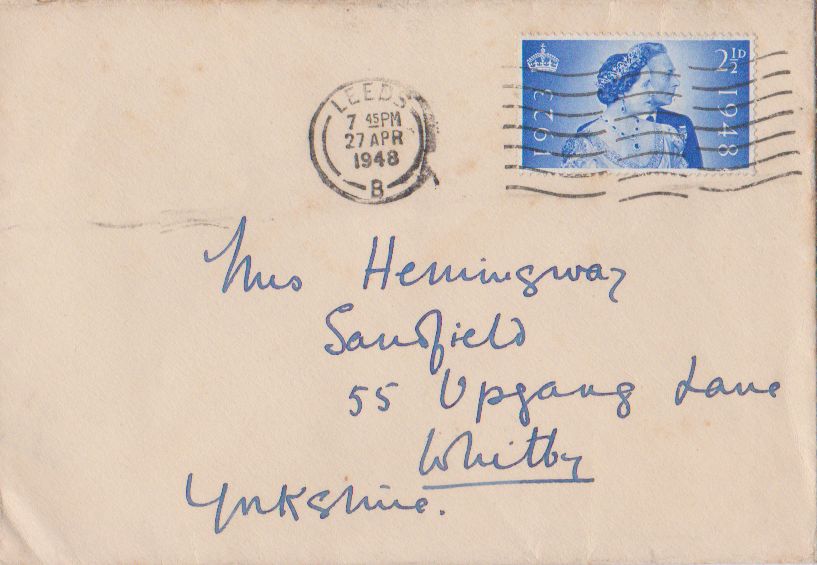 LEEDS
7 45PM
27 APR
1948
B
2½D
1923
1948
Mrs Hemingway
Sandfield
55 Upgang Lane
Whitby
Yorkshire.